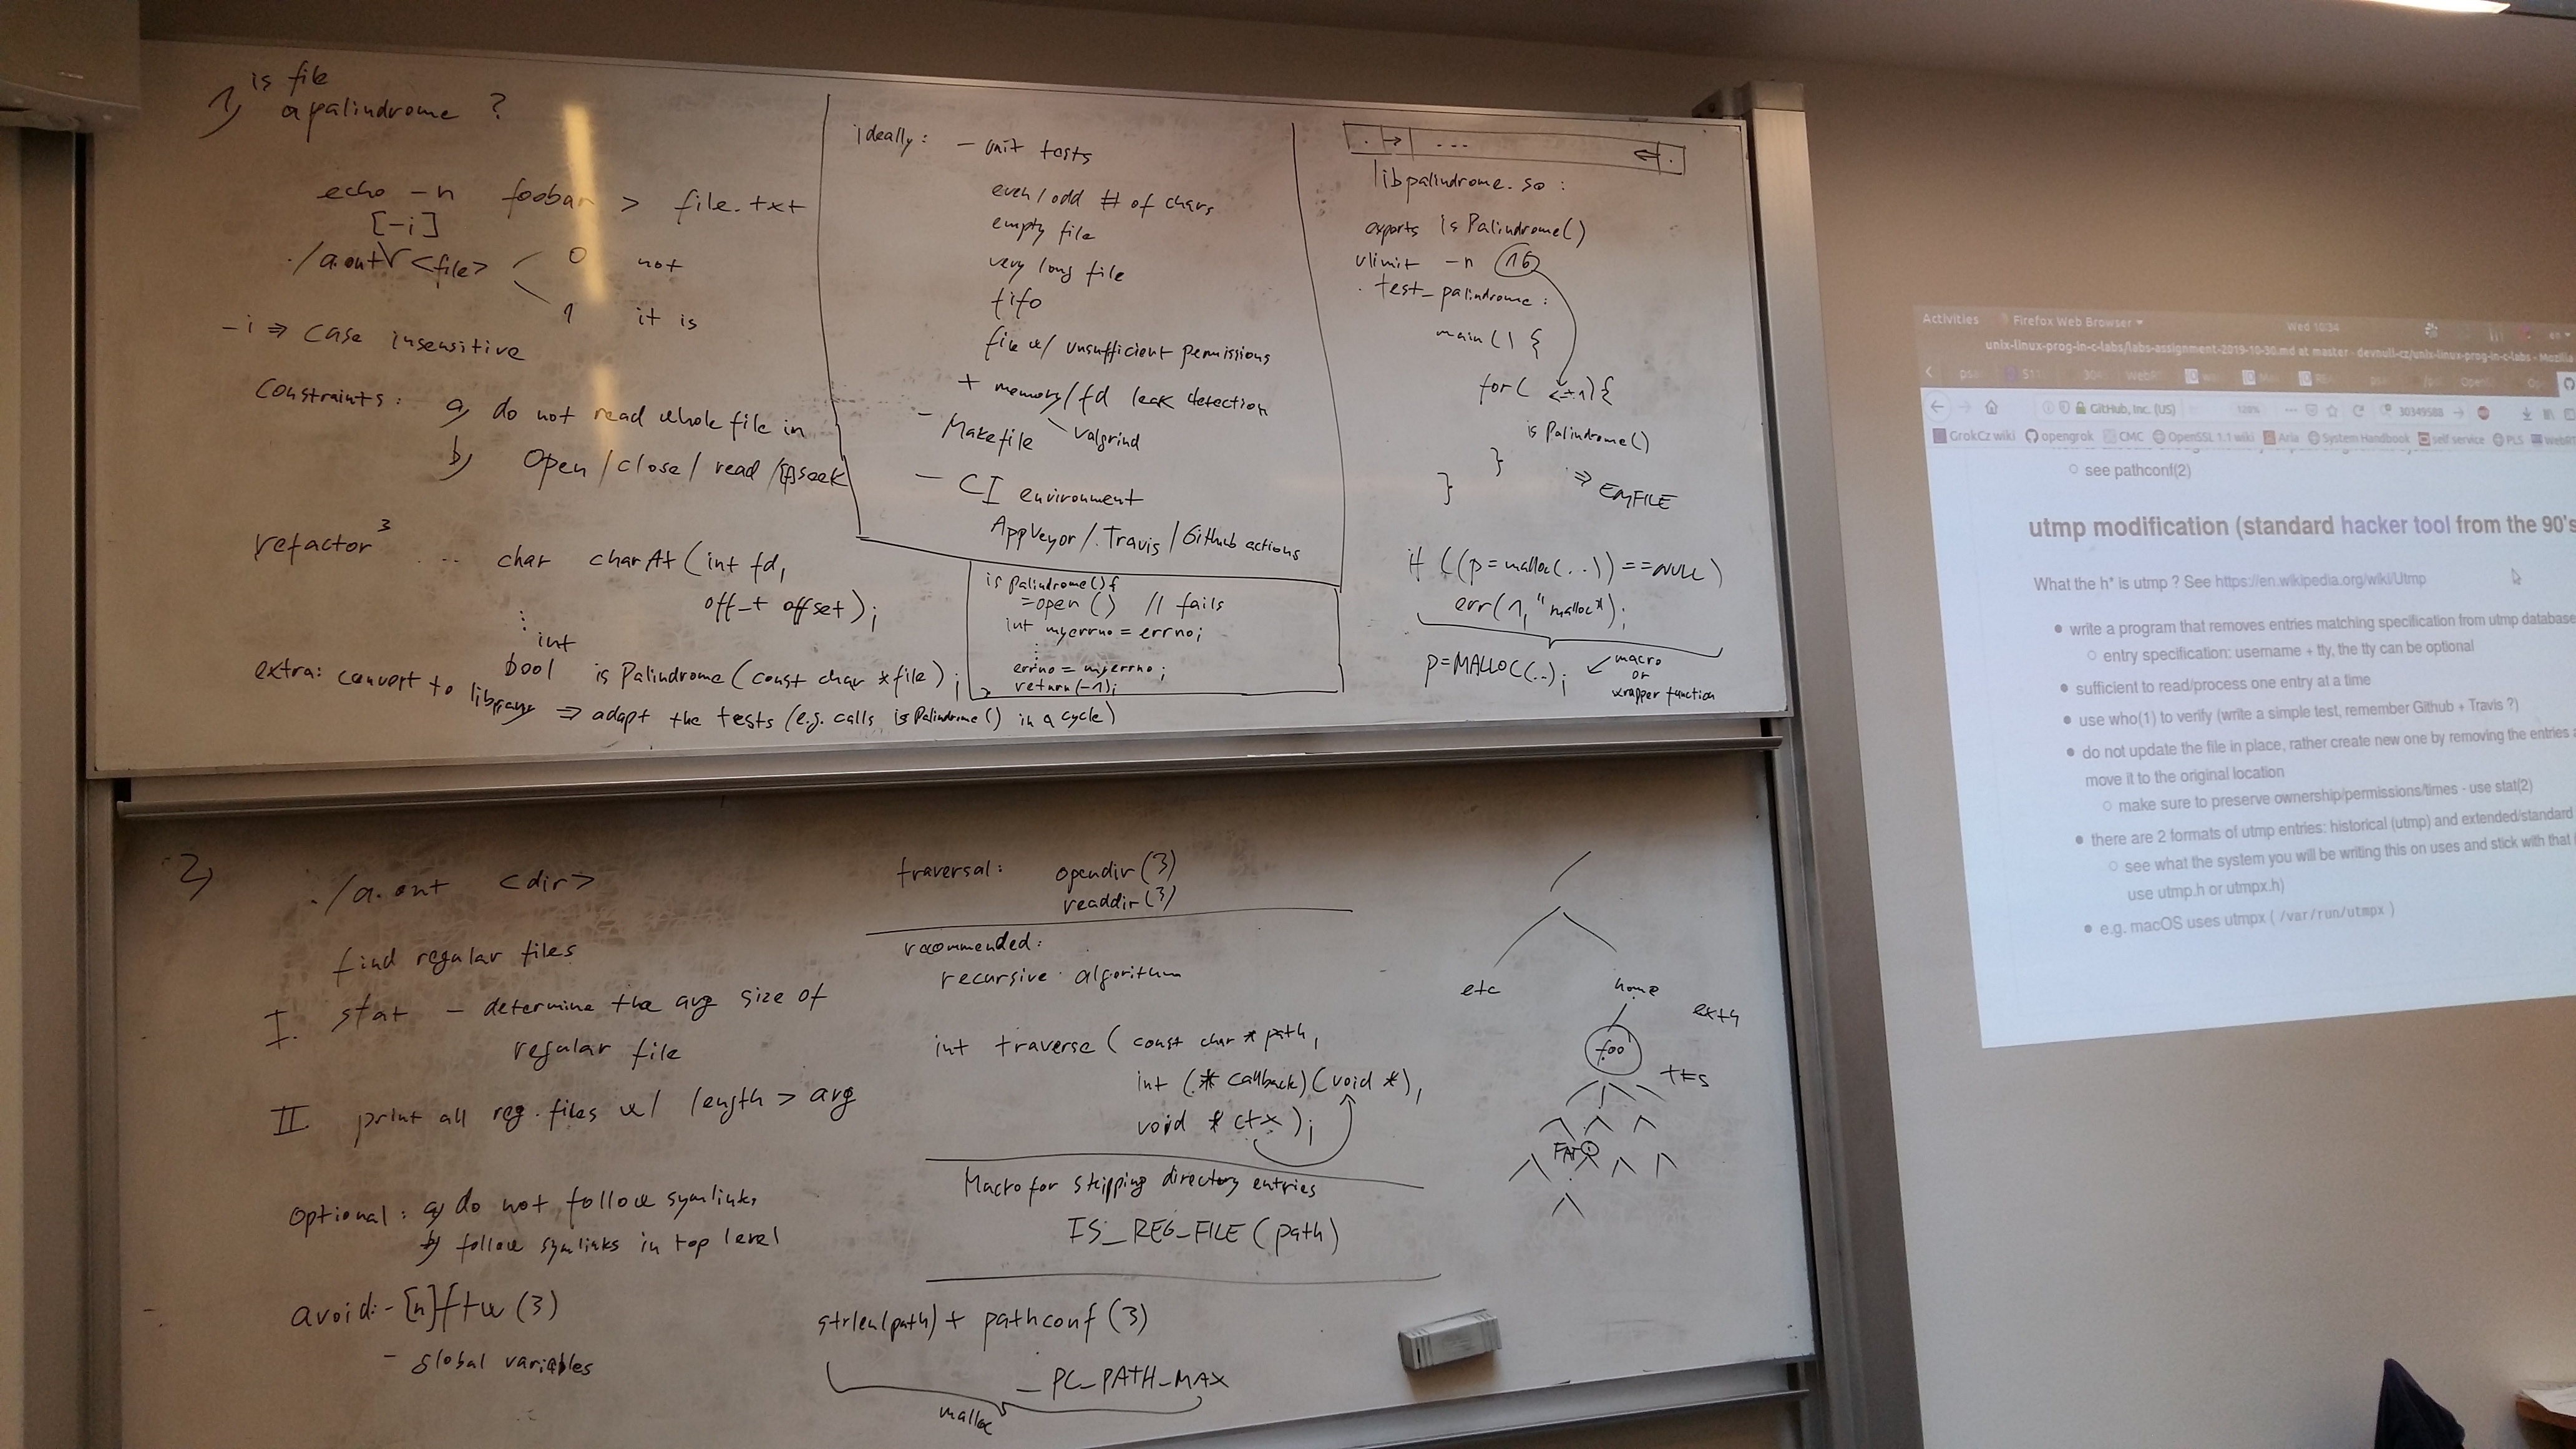 1) is file
a palindrome ?
echo -n foobar > file.txt
[-i]
./a.out <file>
0 not
1 it is
-i => case insensitive
Constraints: a) do not read whole file in
b) open/close/read/[p]seek
refactor 3 .. char charAt(int fd,
off_t offset);
int
bool isPalindrome(const char *file);
extra: convert to library => adapt the tests (e.g. calls isPalindrome() in a cycle)
ideally: - unit tests
even/odd # of chars
empty file
very long file
fifo
file w/ unsufficient permissions
+ memory/fd leak detection
valgrind
- Makefile
- CI environment
AppVeyor/.Travis/Github actions
isPalindrome(){
=open() // fails
int myerrno = errno;
⋮
errno = myerrno;
return(-1);
}
. → ... ← .
libpalindrome.so:
exports isPalindrome()
ulimit -n 16
. test_palindrome:
main() {
for( <=+1){
isPalindrome()
}
}
=> EMFILE
if ((p=malloc(...))==NULL)
err(1, "malloc");
p=MALLOC(..);
macro
or
wrapper function
2)
./a.out <dir>
find regular files
I. stat - determine the avg size of
regular file
II print all reg. files w/ length > avg
Optional: a) do not follow symlinks
b) follow symlinks in top level
avoid: - [n]ftw(3)
- global variables
traversal: opendir(3)
readdir(3)
recommended:
recursive algorithm
int traverse( const char *path,
int (*callback)(void *),
void *ctx);
Macro for skipping directory entries
IS_REG_FILE(path)
strlen(path) + pathconf(3)
_PC_PATH_MAX
malloc
/
etc
home
ext4
foo
Activities
Firefox Web Browser
Wed 10:34
en
unix-linux-prog-in-c-labs/labs-assignment-2019-10-30.md at master · devnull-cz/unix-linux-prog-in-c-labs - Mozilla
GitHub, Inc. (US)
120%
30349588
GrokCz wiki
opengrok
CMC
OpenSSL 1.1 wiki
Aria
System Handbook
self service
PLS
see pathconf(2)
utmp modification (standard hacker tool from the 90's
What the h* is utmp ? See https://en.wikipedia.org/wiki/Utmp
write a program that removes entries matching specification from utmp database
entry specification: username + tty, the tty can be optional
sufficient to read/process one entry at a time
use who(1) to verify (write a simple test, remember Github + Travis ?)
do not update the file in place, rather create new one by removing the entries
move it to the original location
make sure to preserve ownership/permissions/times - use stat(2)
there are 2 formats of utmp entries: historical (utmp) and extended/standard
see what the system you will be writing this on uses and stick with that
use utmp.h or utmpx.h)
e.g. macOS uses utmpx ( /var/run/utmpx )